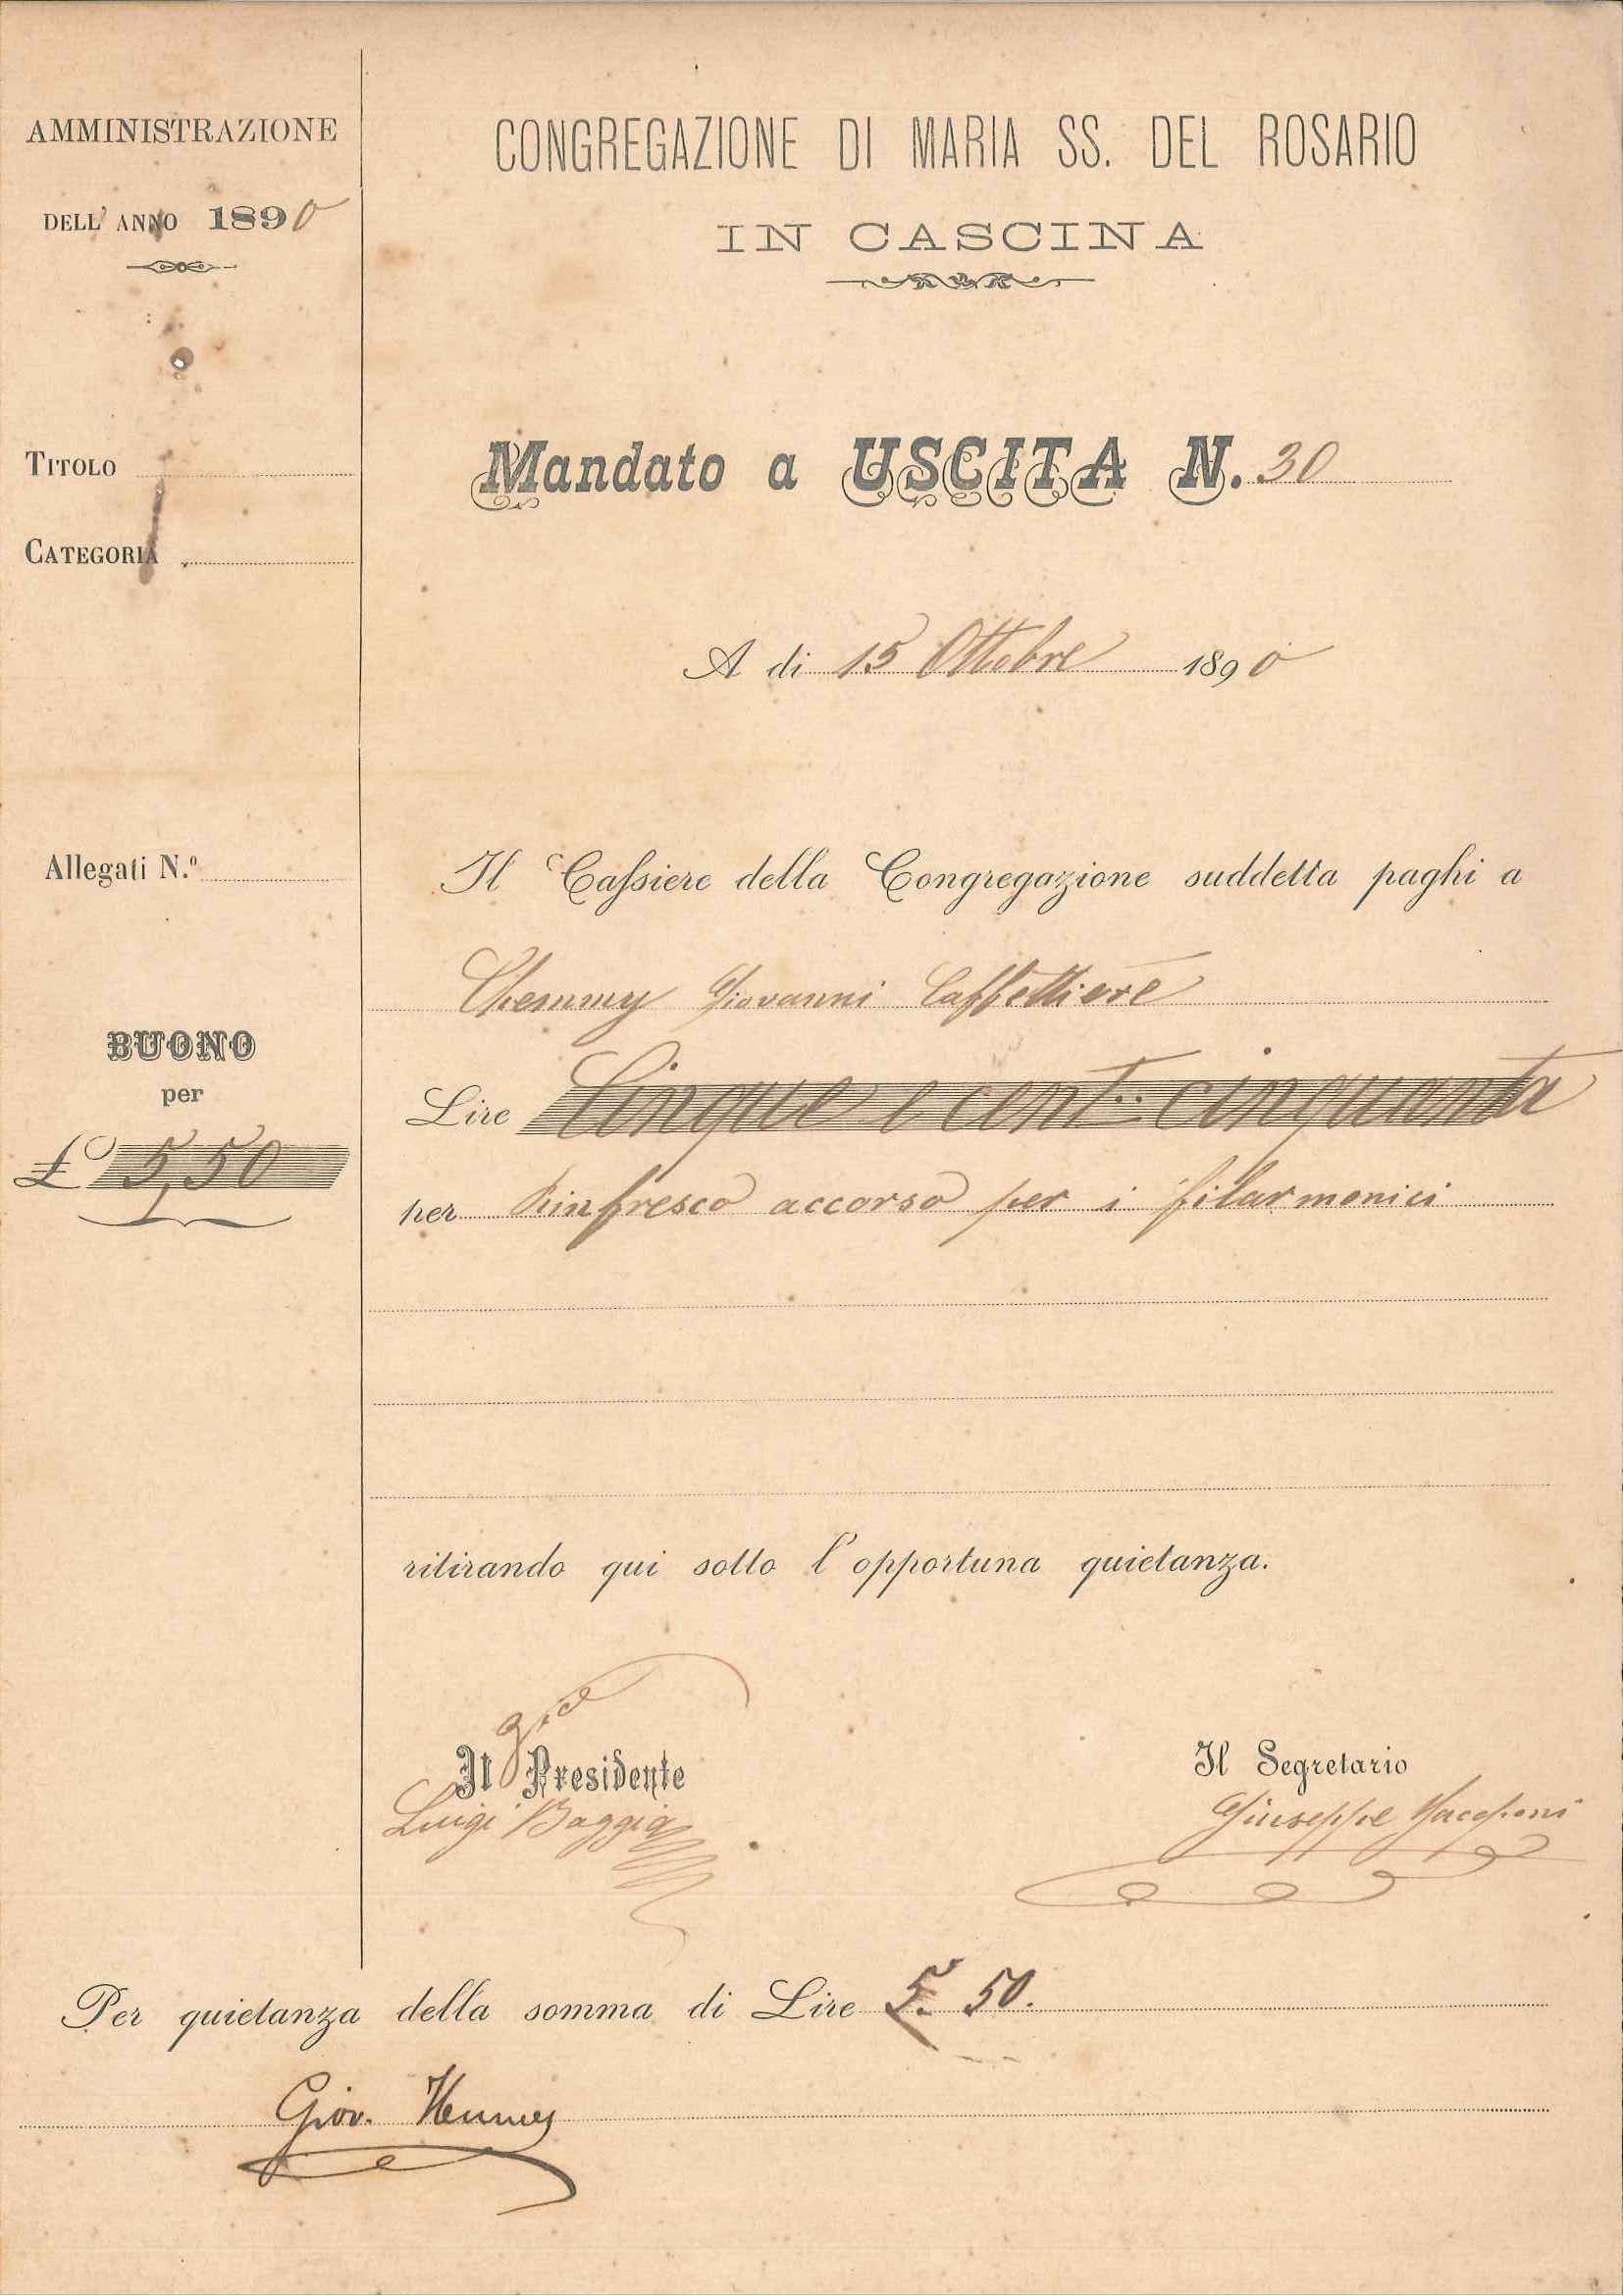 AMMINISTRAZIONE
DELL' ANNO 1890
TITOLO
CATEGORIA
Allegati N.º
BUONO
per
£ 5,50
CONGREGAZIONE DI MARIA SS. DEL ROSARIO
IN CASCINA
Mandato a USCITA N. 30
A di 15 Ottobre 1890
Il Cassiere della Congregazione suddetta paghi a
Giovanni Caffettiere
Lire Cinque e cent. cinquanta
per Rinfresco accorso per i filarmonici
ritirando qui sotto l'opportuna quietanza.
Il Presidente
Luigi
Il Segretario
Giuseppe Jacoponi
Per quietanza della somma di Lire 5. 50.
Giov.